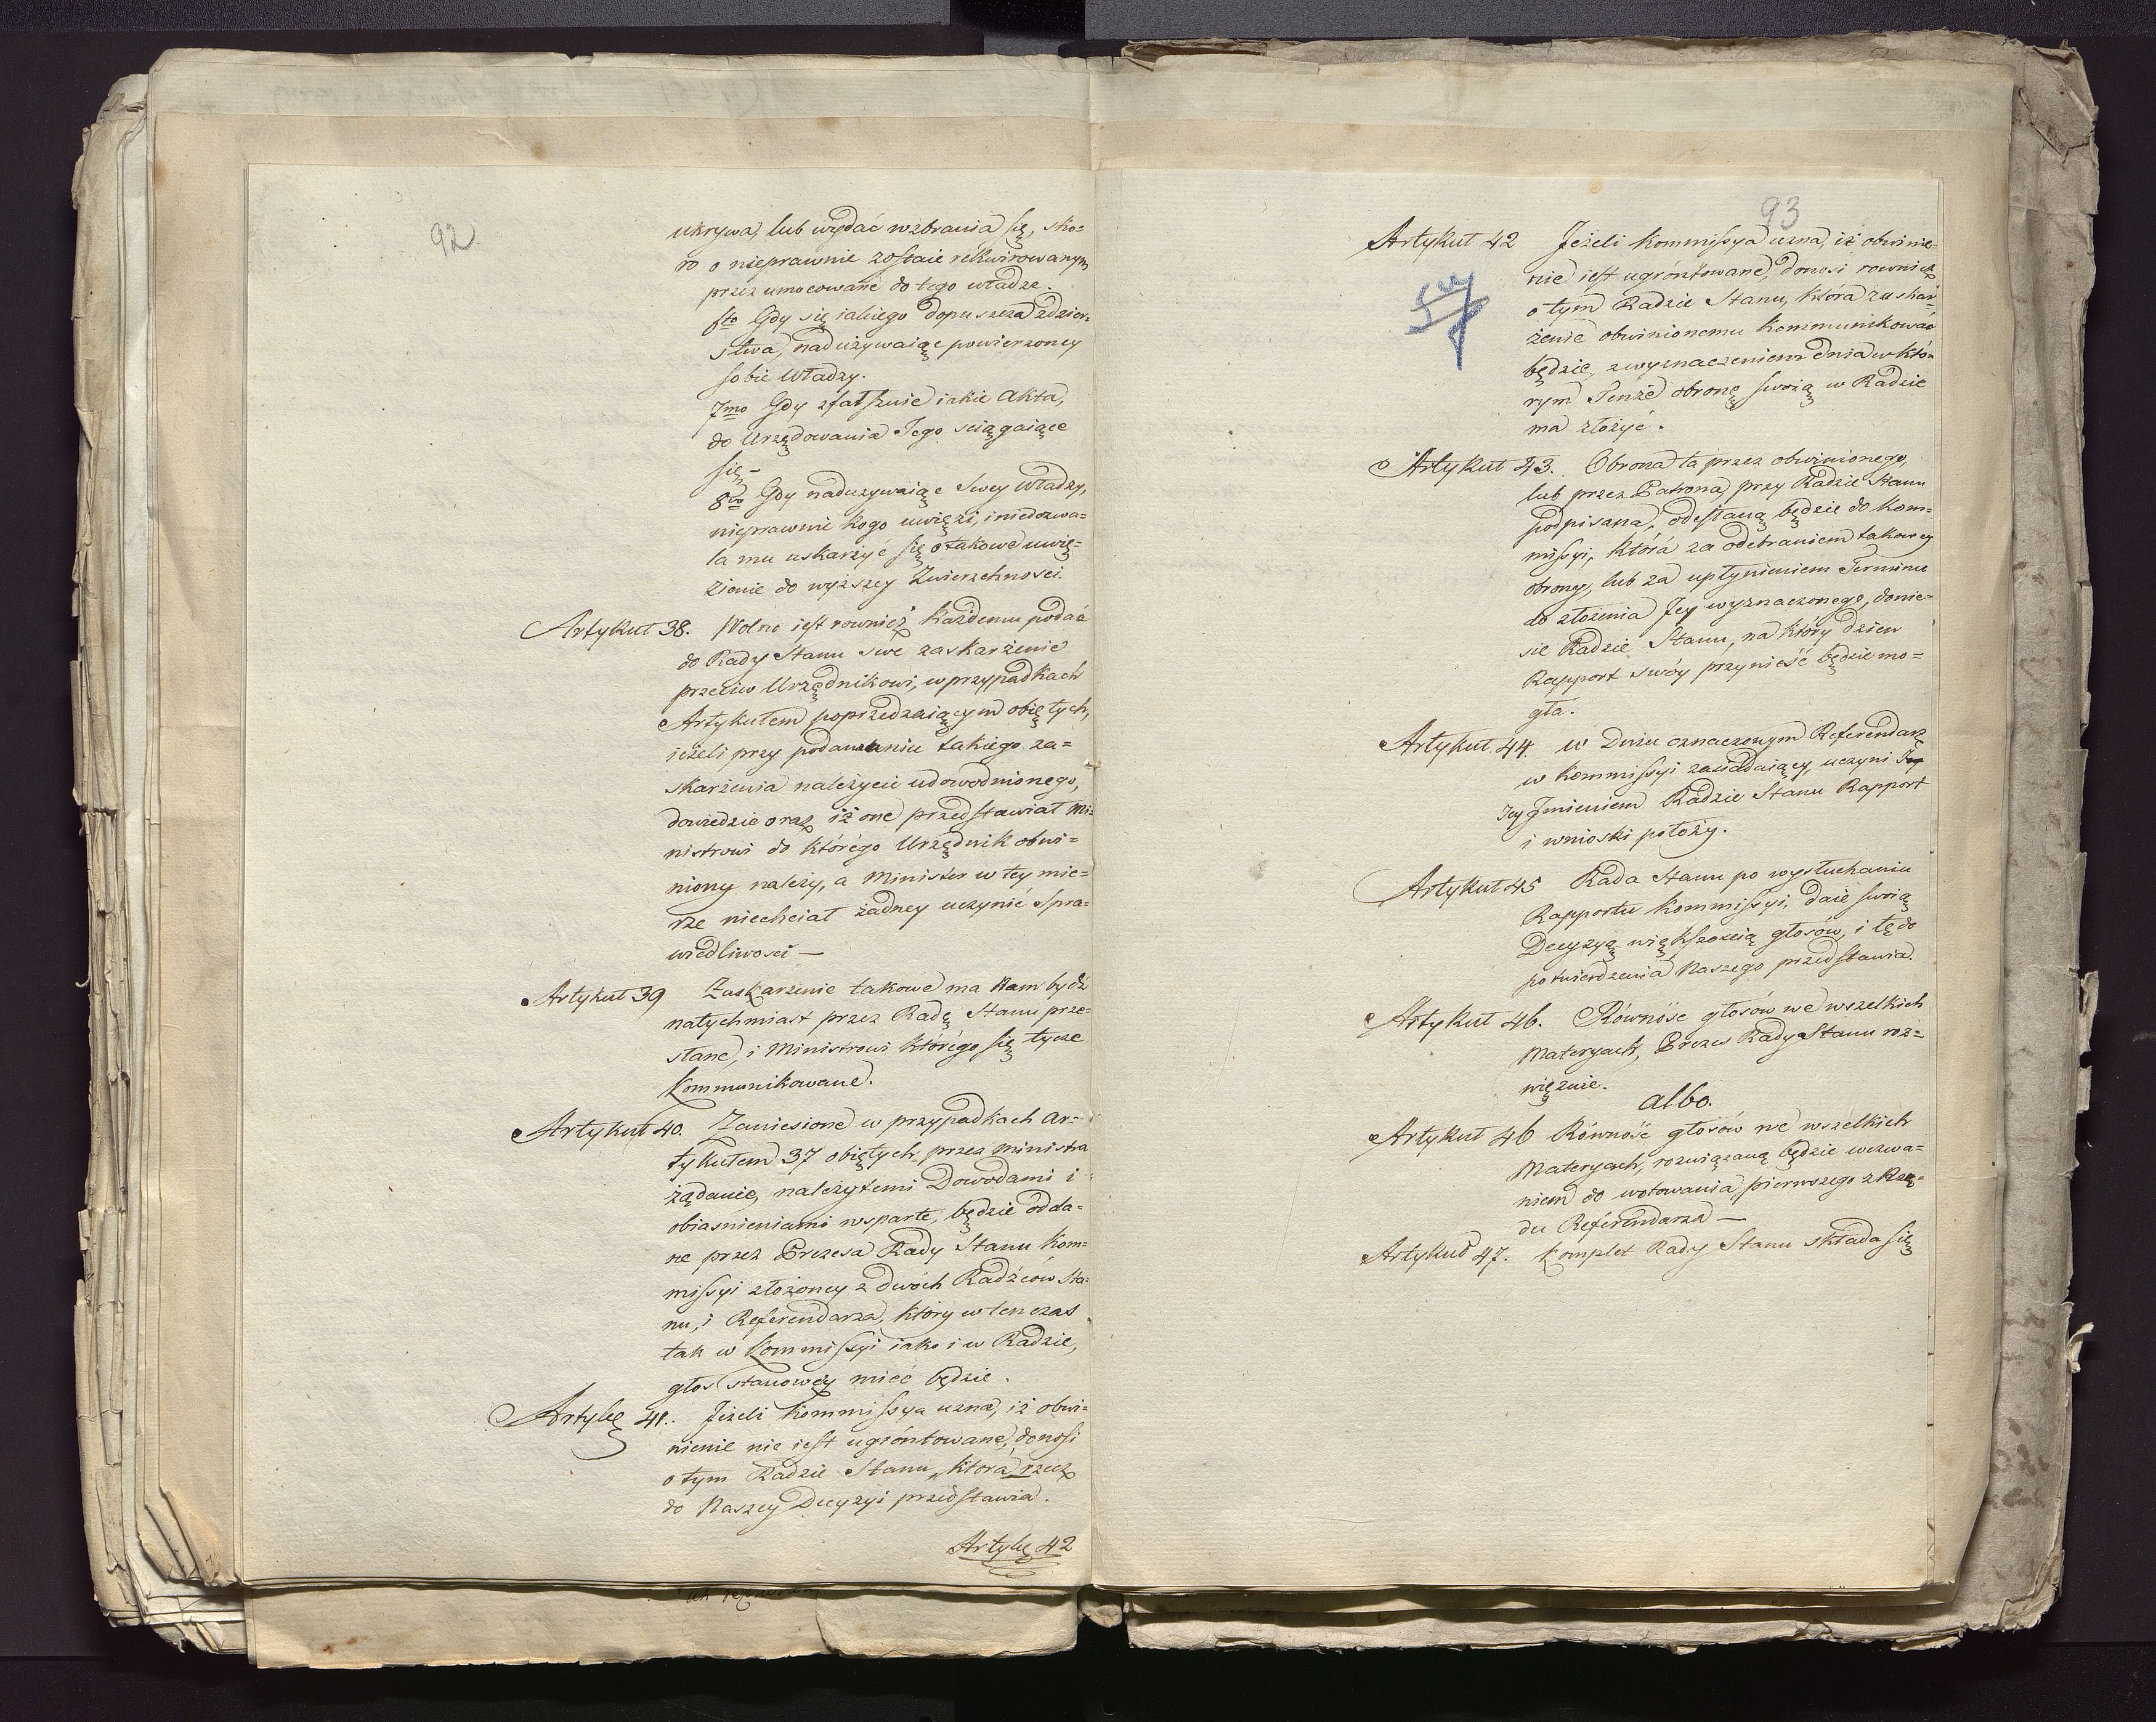 92
ukrywa, lub wydać wzbrania się, sko=
ro o nieprawnie zostaie rekwirowanym
przez umocowane do tego władze.
6to Gdy się iakiego dopuszcza zdzier=
stwa, nadużywaiąc powierzoney
sobie Władzy.
7mo Gdy zfałszuie iakie Akta,
do Urzędowania Jego sciągaiące
się –
8vo Gdy naduzywaiąc Swey Władzy,
nieprawnie kogo uwięzi, i niedozwa=
la mu uskarżyć się o takowe uwię=
zienie do wyższey Zwierzchnosci.
Artykuł 38. Wolno iest rownież każdemu podać
do Rady Stanu swe zaskarżenie
przeciw Urzędnikowi, w przypadkach
Artykułem poprzedzaiącym obiętych,
ieżeli przy podaniu takiego za=
skarżenia należycie udowodnionego,
dowiedzie oraz iż one przedstawiał Mi=
nistrowi do którego Urzędnik obwi=
niony należy, a Minister w tey mie=
rze niechciał żadney uczynić Spra=
wiedliwosci —
Artykuł 39 Zaskarzenie takowe ma Nam bydź
natychmiast przez Radę Stanu prze=
słane, i Ministrowi którego się tycze
kommunikowane.
Artykuł 40. Zaniesione w przypadkach Ar=
tykułem 37 obiętych przez Ministra
żądanie, należytemi Dowodami i
obiasnieniami wsparte, będzie odda=
ne przez Prezesa Rady Stanu Kom=
missyi złożoney z dwóch Radźców Sta=
nu, i Referendarza, który w ten czas
tak w Kommissyi iako i w Radzie,
głos stanowczy mieć będzie.
Artykę 41. Jeżeli Kommissya uzna, iż obwi=
nienie nie iest ugróntowane, donosi
o tym Radzie Stanu, która rzecz
do Naszey Decyzyi przedstawia.
Artykę 42
93
Artykuł 42 Jeżeli Kommissya uzna, iż obwinie=
nie iest ugróntowane, donosi rownież
o tym Radzie Stanu, która zaskar=
żenie obwinionemu kommunikować
będzie, z wyznaczeniem dnia w któ=
rym Tenże obronę swoią w Radzie
ma złożyć.
Artykuł 43. Obrona ta przez obwinionego,
lub przez Patrona, przy Radzie Stanu
podpisana, odesłaną będzie do Kom=
missyi, która za odebraniem takowey
obrony, lub za upłynieniem Terminu
do złożenia Jey wyznaczonego, donie=
sie Radzie Stanu, na który dzien
Rapport swóy przynieść będzie mo=
gła.
Artykuł 44. W Dniu oznaczonym Referendarz
w Kommissyi zasiadaiący, uczyni Jey
Jey Jmieniem Radzie Stanu Rapport
i wnioski położy.
Artykuł 45 Rada Stanu po wysłuchaniu
Rapportu Kommissyi, daie swoią
Decyzyą większoscią głosów, i tę do
potwierdzenia Naszego przedstawia.
Artykuł 46. Równość głosów we wszelkich
Materyach, Prezes Rady Stanu roz=
więzuie.
albo.
Artykuł 46 Równość głosów we wszelkich
Materyach, rozwiązaną będzie wezwa=
niem do wotowania pierwszego z Rzę=
du Referendarza —
Artykuł 47. Komplet Rady Stanu składa się